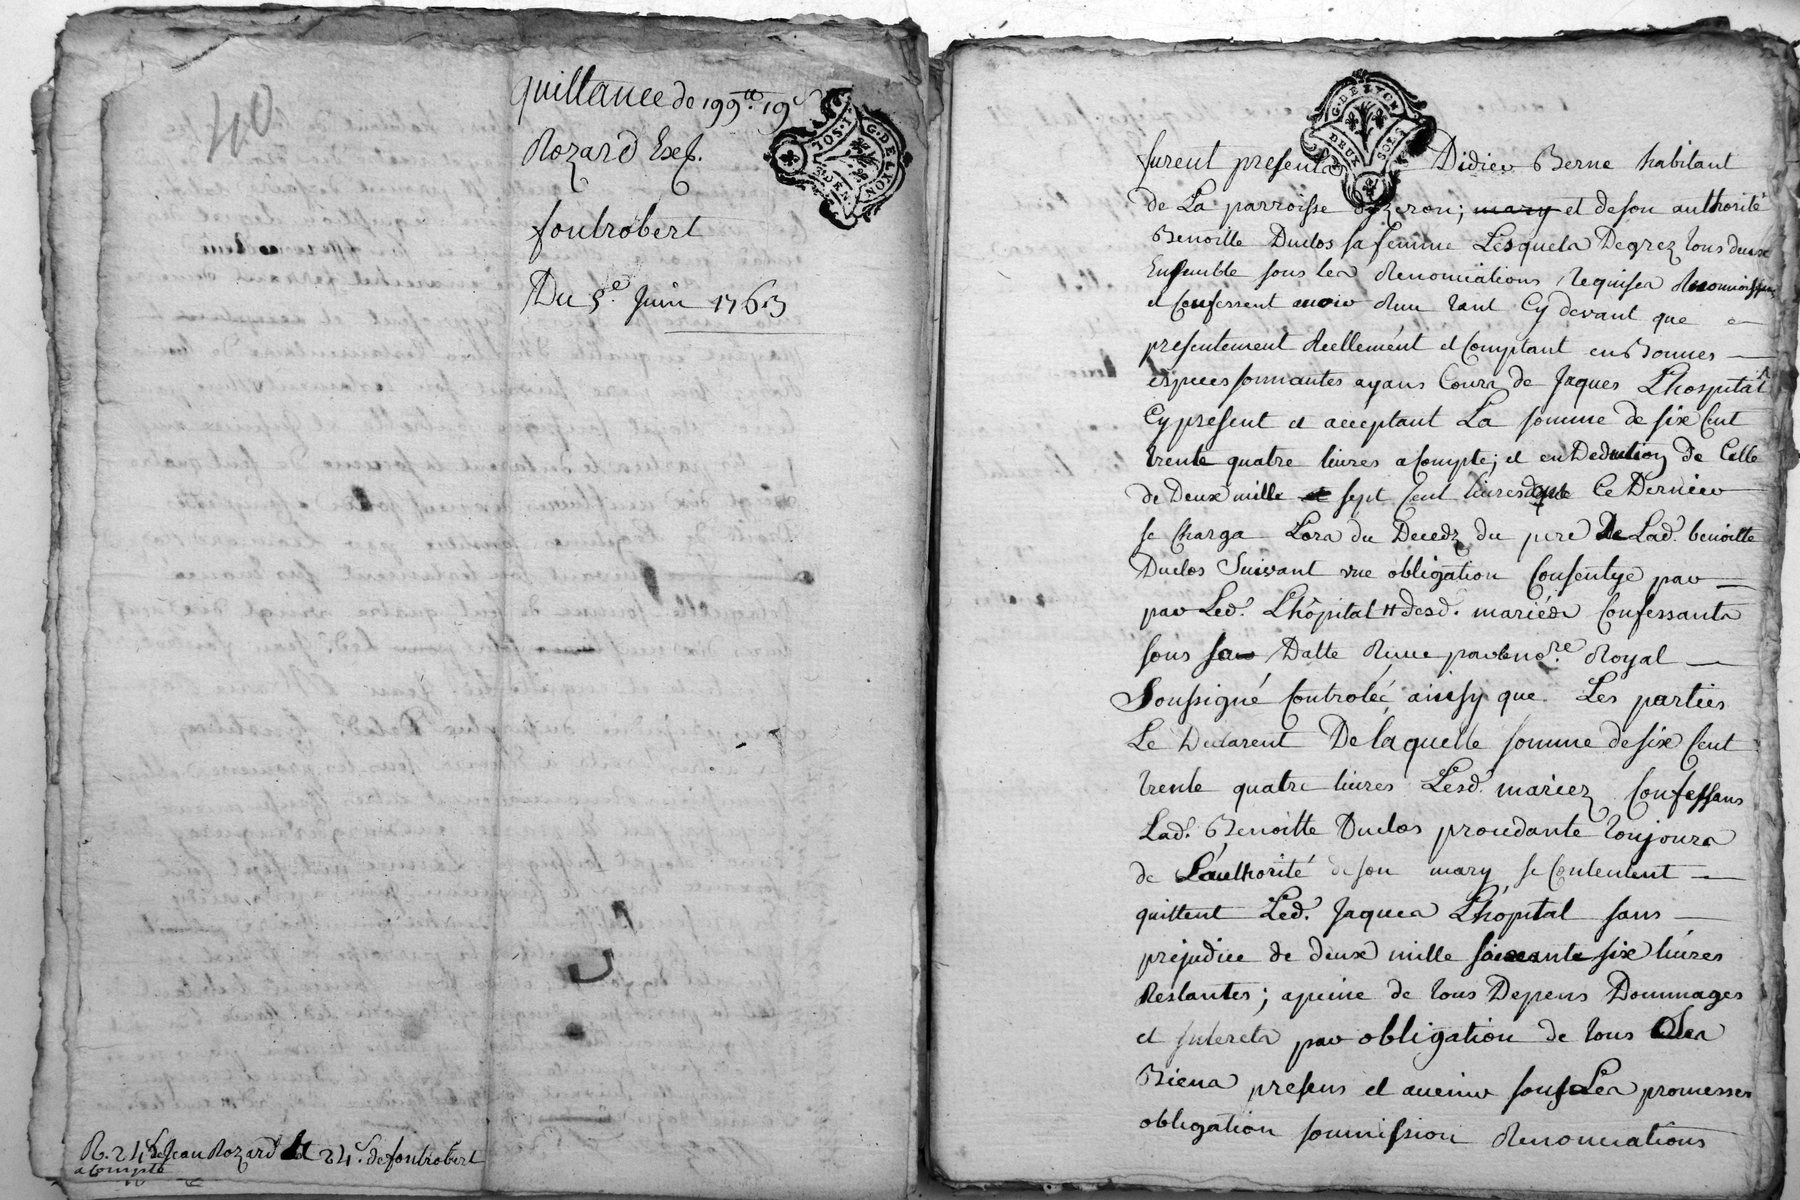 40
quittance de 199lt 19s
Rozard Exp.
fontrobert
Du 5e. Juin 1763
G. DE LYON
R. 24s de Jean Rozard et 24s. de fontrobert
acompte
G. DE LYON
DEUX SOLS
furent presents Didier Berne habitant
de La parroisse d'yzeron; mary et de son authorité
Benoitte Duclos sa femme Lesquels Degrez tous deux
Ensemble sous les Renonciations requises Reconnoissent
et Confessent avoir Reçu tant Cy devant que
presentement Reellement et Comptant en Bonnes
especes sonnantes ayans Cours de Jaques L'hospital
Cy present et acceptant La somme de six Cent
trente quatre livres acompte; et en Deduction de Celle
de Deux mille et sept Cent livres dont Ce Dernier
se Chargea Lors du Decedz du pere De Lad. benoitte
Duclos Suivant une obligation Consentye par
par Led. L'hôpital # desd. mariés Confessants
sous sa Datte Reçue par le nore. Royal
Soussigné Controlée, ainsy que Les parties
Le Declarent De laquelle somme de six Cent
trente quatre livres Lesd. mariez Confessans
Lad. Benoitte Duclos procedante toujours
de L'authorité de son mary se Contentent
quittent Led. Jaques L'hôpital sans
prejudice de deux mille soixante six livres
Restantes; apeine de tous Depens Dommages
et Interets par obligation de tous Ses
Biens presens et avenir sous Les promesses
obligation soumission Renonciations